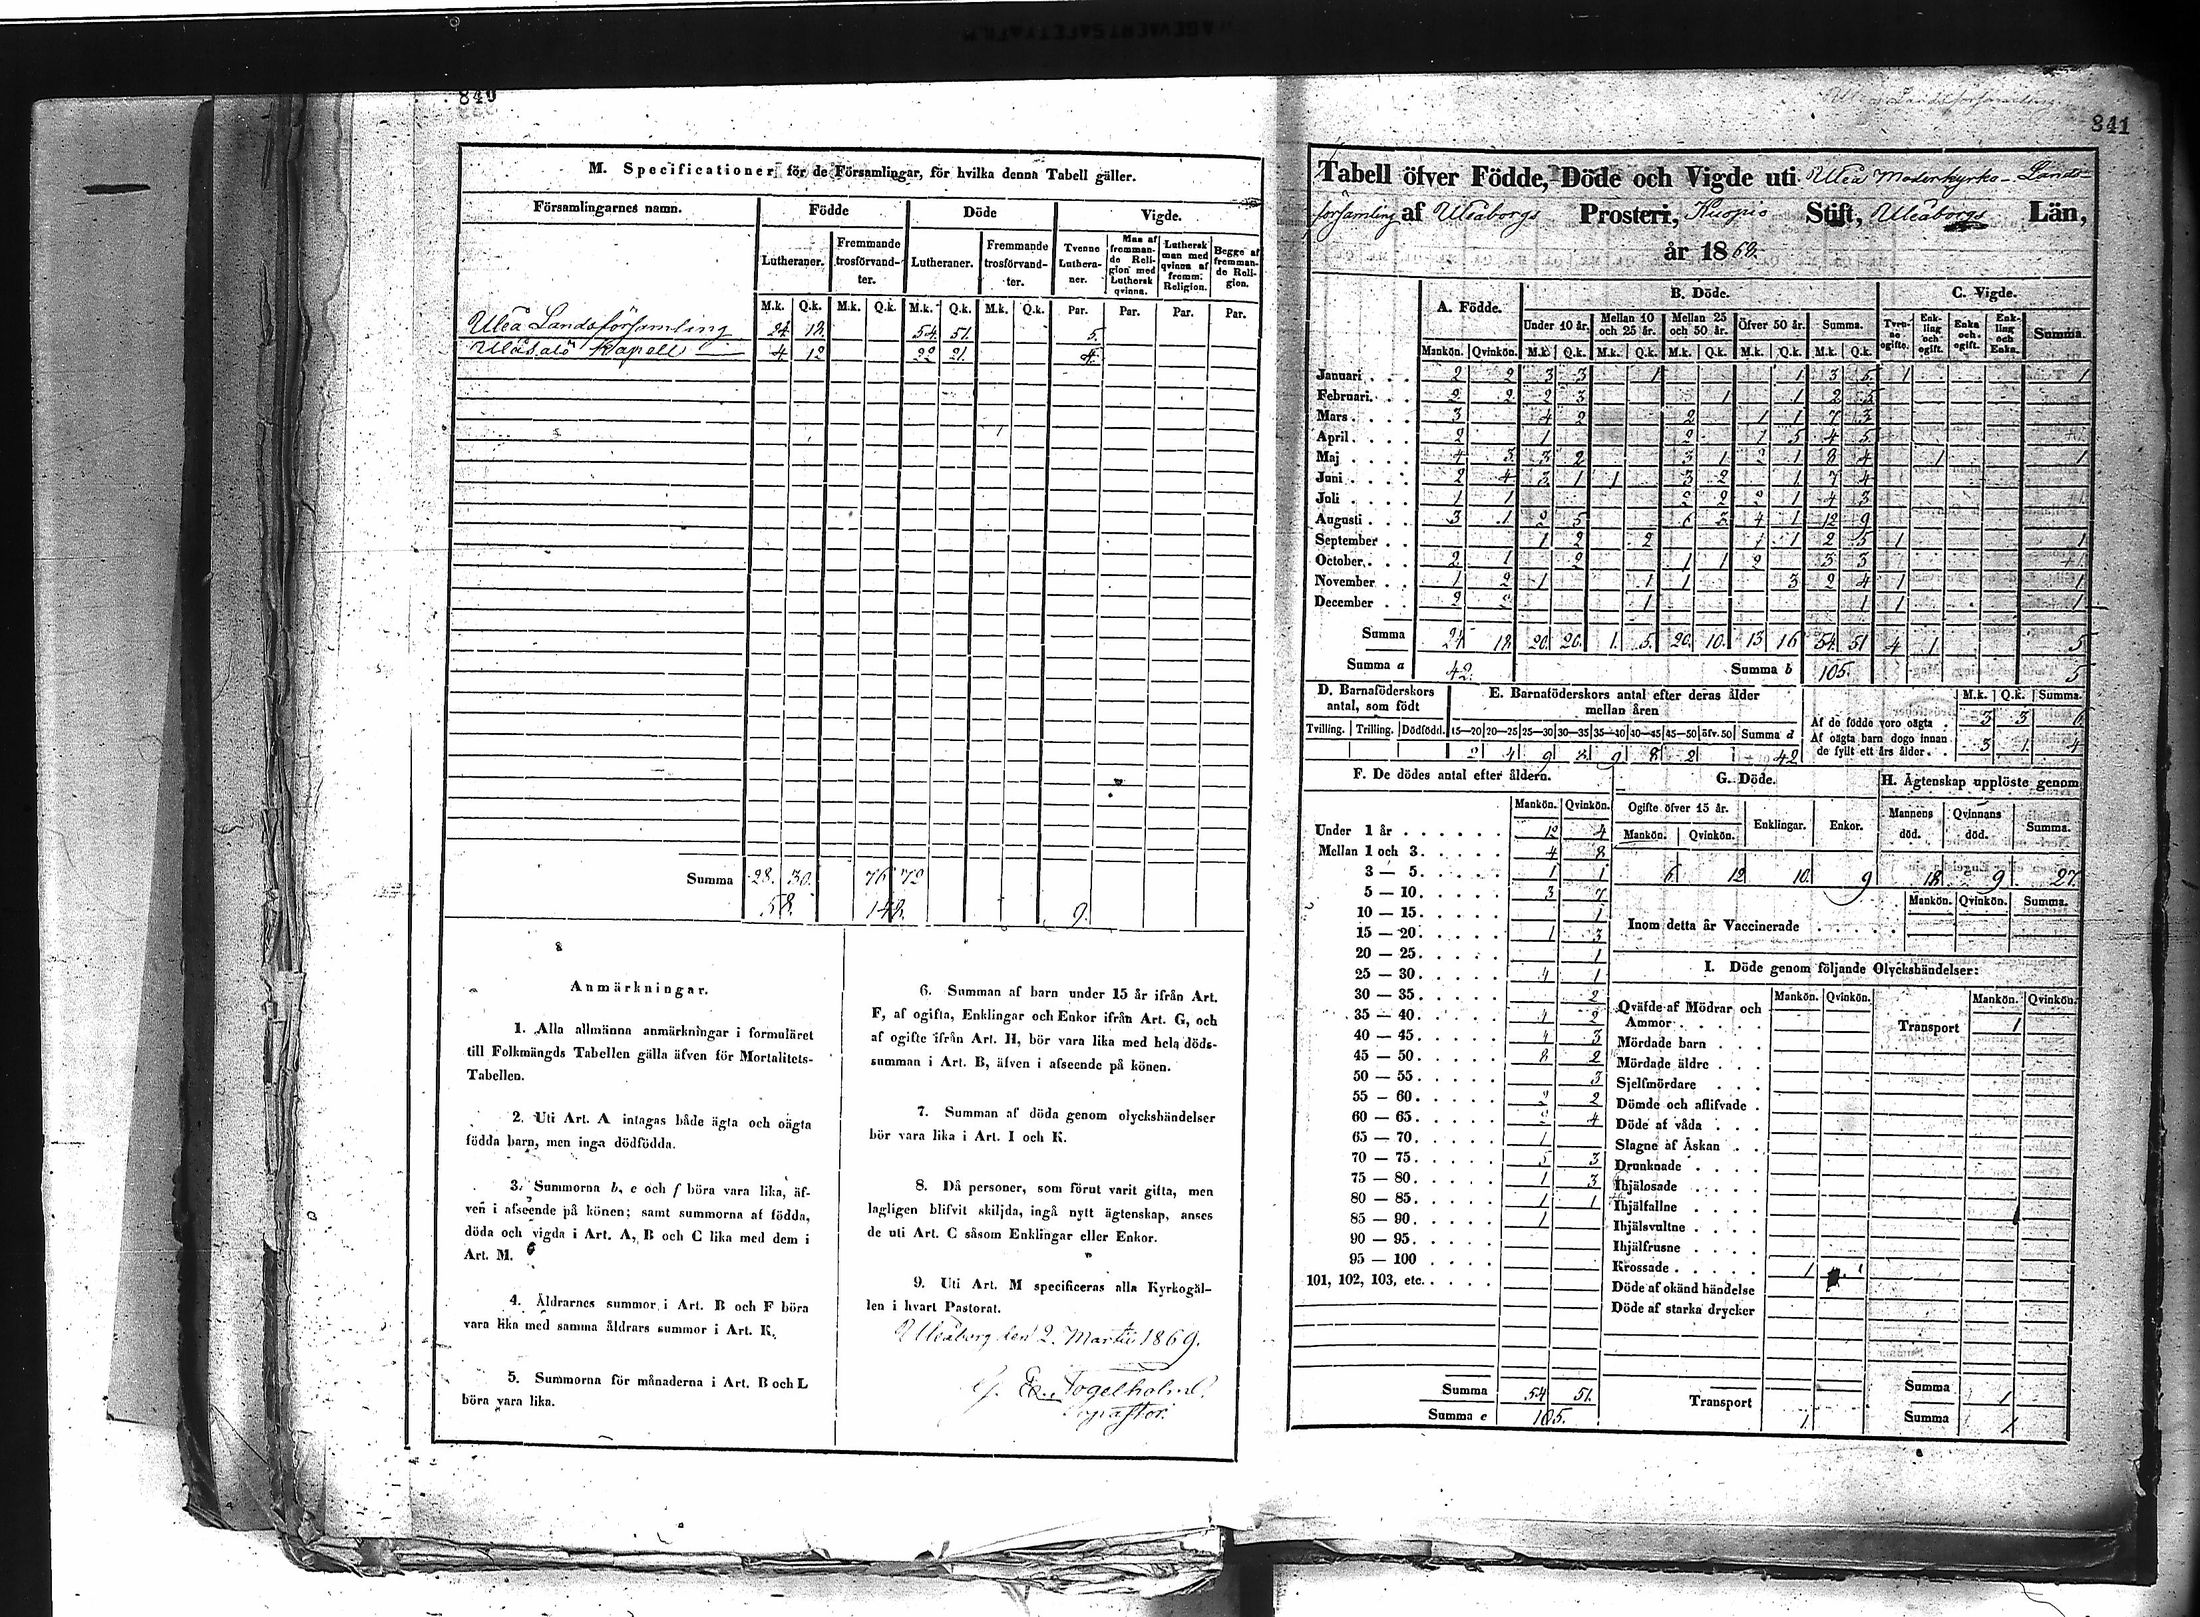 840
M. Specificationer för de Församlingar, för hvilka denna Tabell gäller.
Församlingarnes namn. Födde Döde Vigde.
Lutheraner. Fremmande trosförvandter. Lutheraner. Fremmande trosförvandter. Tvenne Lutheraner. Man af fremmande Religion med Luthersk qvinna. Luthersk man med qvinna af fremm: Religion. Begge af fremmande Religion.
M.k. Q.k. M.k. Q.k. M.k. Q.k. M.k. Q.k. Par. Par. Par. Par.
Uleå Landsförsamling 24 18. 54. 51. 5.
Uleåsalo Kapell 4 12 22 21. 4.
Summa 28. 30. 76 72
58. 148. 9.
Anmärkningar.
1. Alla allmänna anmärkningar i formuläret
till Folkmängds Tabellen gälla äfven för Mortalitets-
Tabellen.
2. Uti Art. A intagas både ägta och oägta
födda barn, men inga dödfödda.
3. Summorna b, e och f böra vara lika, äf-
ven i afseende på könen; samt summorna af födda,
döda och vigda i Art. A, B och C lika med dem i
Art. M.
4. Åldrarnes summor i Art. B och F böra
vara lika med samma åldrars summor i Art. K.
5. Summorna för månaderna i Art. B och L
böra vara lika.
6. Summan af barn under 15 år ifrån Art.
F, af ogifta, Enklingar och Enkor ifrån Art. G, och
af ogifte ifrån Art. H, bör vara lika med hela döds-
summan i Art. B, äfven i afseende på könen.
7. Summan af döda genom olyckshändelser
bör vara lika i Art. I och K.
8. Då personer, som förut varit gifta, men
lagligen blifvit skiljda, ingå nytt ägtenskap, anses
de uti Art. C såsom Enklingar eller Enkor.
9. Uti Art. M specificeras alla Kyrkogäl-
len i hvart Pastorat.
Uleåborg den 2. Martii 1869.
Uleå Landsförsamling
841
Tabell öfver Födde, Döde och Vigde uti Uleå Moderkyrko-Lands-
församling af Uleåborgs Prosteri, Kuopio Stift, Uleåborgs Län,
år 1868.
A. Födde. B. Döde. C. Vigde.
Under 10 år. Mellan 10 och 25 år. Mellan 25 och 50 år. Öfver 50 år. Summa. Tvenne ogifte. Enkling och ogift. Enka och ogift. Enkling och Enka. Summa.
Mankön. Qvinkön. M.k. Q.k. M.k. Q.k. M.k. Q.k. M.k. Q.k. M.k. Q.k.
Januari 2 2 3 3 1 1 3 5 1 1
Februari 2 2 2 3 1 1 2 5
Mars 3 4 2 2 1 1 7 3
April 2 1 2 1 5 4 5
Maj 4 3 3 2 3 1 2 1 8 4 1 1
Juni 2 4 3 1 1 3 2 1 7 4
Juli 1 1 2 2 2 1 4 3
Augusti 3 1 2 5 6 3 4 1 12 9
September 1 2 2 1 1 2 5 1 1
October 2 1 2 1 1 2 3 3
November 1 2 1 1 1 3 2 4 1 1
December 2 2 1 1 1 1
Summa 24 18 20. 20. 1. 5. 20. 10. 13 16 54. 51 4 1 5
Summa a 42. Summa b 105. 5
D. Barnaföderskors antal, som födt
E. Barnaföderskors antal efter deras ålder mellan åren
M.k. Q.k. Summa.
Tvilling. Trilling. Dödfödd. 15—20 20—25 25—30 30—35 35—40 40—45 45—50 öfv. 50 Summa d
2 4 9 8 9 8 2 42
Af de födde voro oägta 3 3 6
Af oägta barn dogo innan de fyllt ett års ålder 3 1 4
F. De dödes antal efter åldern.
Mankön. Qvinkön.
Under 1 år 12 4
Mellan 1 och 3 4 8
3 — 5 1 1
5 — 10 3 7
10 — 15 1
15 — 20 1 3
20 — 25 1
25 — 30 4 1
30 — 35 2
35 — 40 4 2
40 — 45 4 3
45 — 50 8 2
50 — 55 3
55 — 60 2 2
60 — 65 2 4
65 — 70 1
70 — 75 5 3
75 — 80 1 3
80 — 85 1 1
85 — 90 1
90 — 95
95 — 100
101, 102, 103, etc.
Summa 54 51.
Summa e 105.
G. Döde.
Ogifte öfver 15 år. Enklingar. Enkor.
Mankön. Qvinkön.
6 12 10 9
H. Ägtenskap upplöste genom
Mannens död. Qvinnans död. Summa.
18 9 27
Mankön. Qvinkön. Summa.
Inom detta år Vaccinerade
I. Döde genom följande Olyckshändelser:
Mankön. Qvinkön. Mankön. Qvinkön.
Qväfde af Mödrar och Ammor
Transport 1
Mördade barn
Mördade äldre
Sjelfmördare
Dömde och aflifvade
Döde af våda
Slagne af Åskan
Drunknade
Ihjälosade
Ihjälfallne
Ihjälsvultne
Ihjälfrusne
Krossade 1
Döde af okänd händelse
Döde af starka drycker
Transport 1
Summa 1
Summa 1